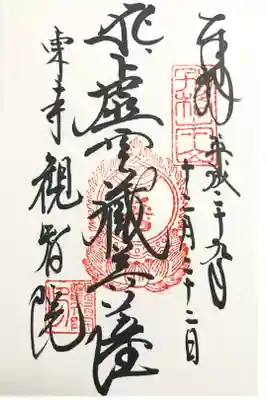 奉拝
平成二十九年
十二月二十二日
五大虚空蔵菩薩
東寺 観智院